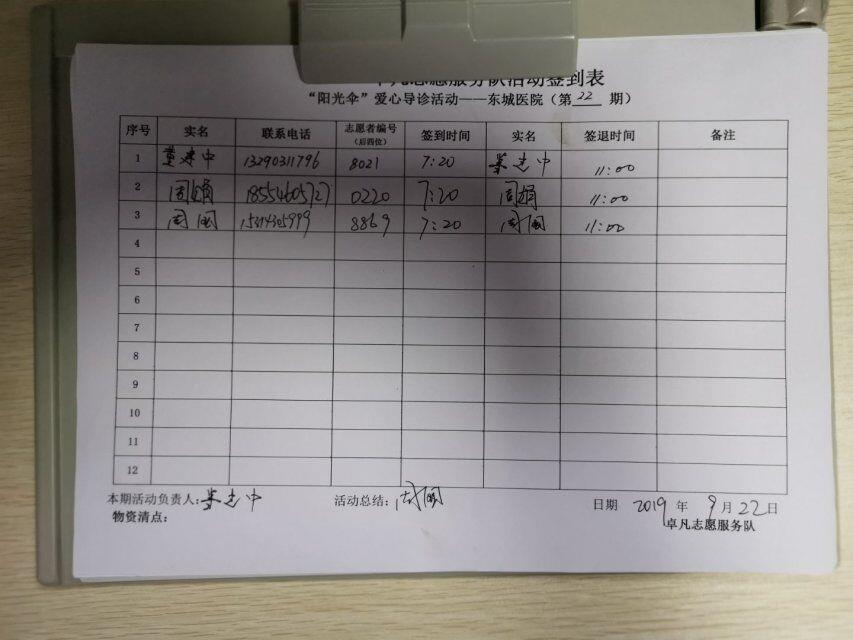 卓凡志愿服务队活动签到表
“阳光伞”爱心导诊活动——东城医院（第 22 期）
序号 实名 联系电话 志愿者编号（后四位） 签到时间 实名 签退时间 备注
1 董建中 13290311796 8021 7:20 董建中 11:00
2 周娟 18554605727 0220 7:20 周娟 11:00
3 周闻 8869 7:20 周闻 11:00
4
5
6
7
8
9
10
11
12
本期活动负责人：董建中 活动总结： 日期 2019 年 9 月 22 日
物资清点： 卓凡志愿服务队